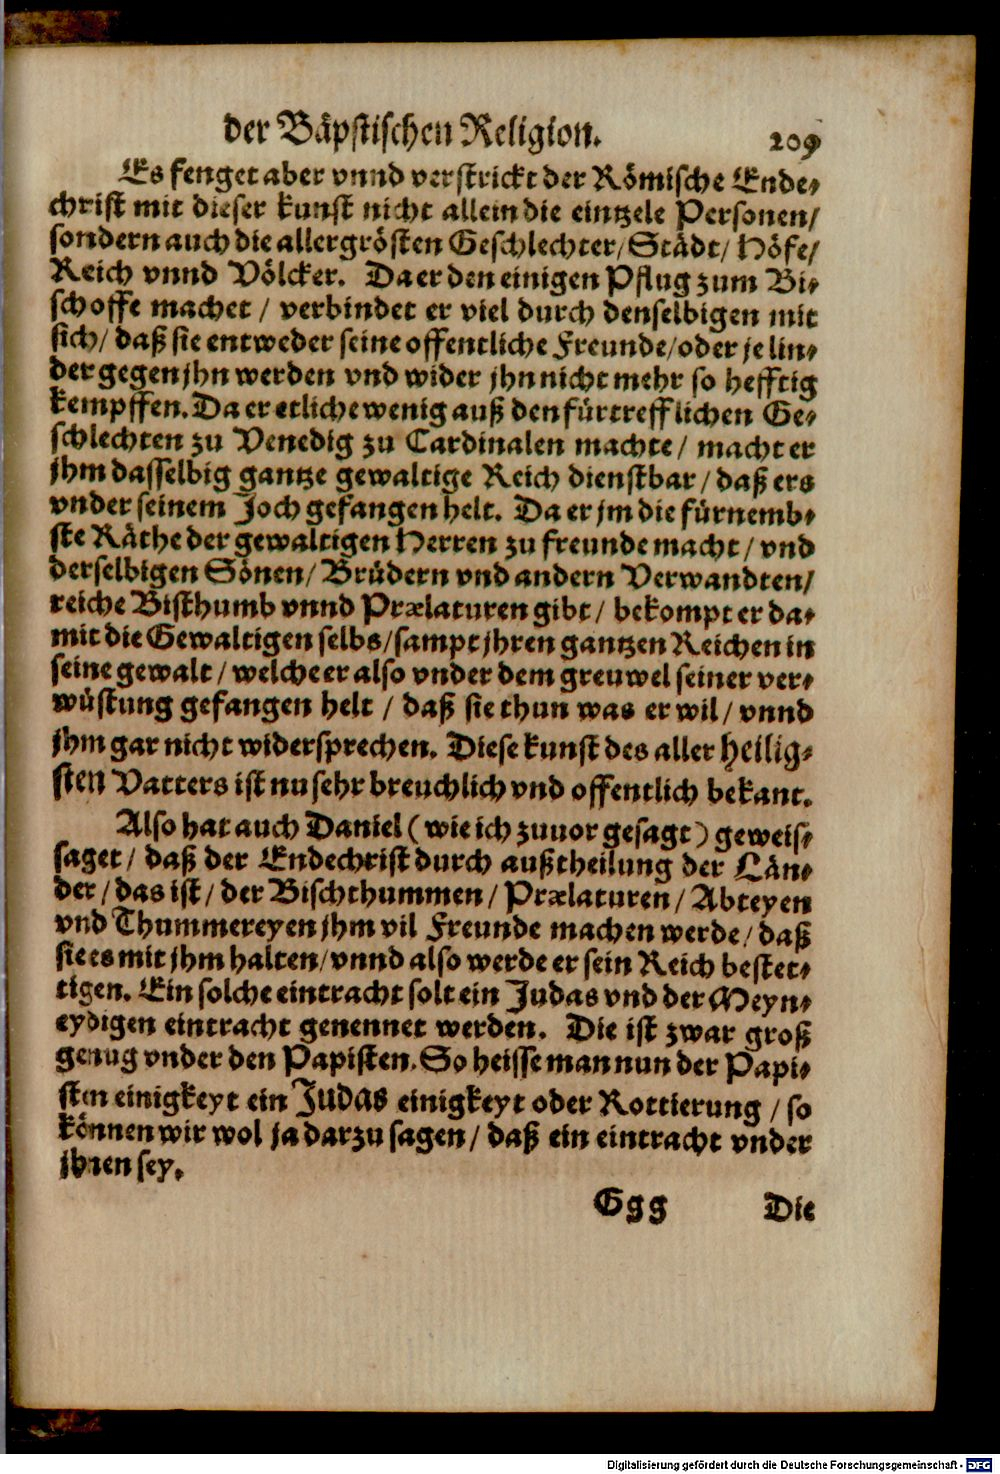 der Bäpstischen Religion. 209
Es fenget aber vnnd verstrickt der Römische Ende,
christ mit dieser kunst nicht allein die eintzele Personen/
sondern auch die allergrösten Geschlechter/ Städt/ Höfe/
Reich vnnd Völcker. Da er den einigen Pflug zum Bi,
schoffe machet / verbindet er viel durch denselbigen mit
sich/ daß sie entweder seine offentliche Freunde/ oder je lin,
der gegen jhn werden vnd wider jhn nicht mehr so hefftig
kempffen. Da er etliche wenig auß den fürtrefflichen Ge,
schlechten zu Venedig zu Cardinalen machte / macht er
jhm dasselbig gantze gewaltige Reich dienstbar / daß ers
vnder seinem Joch gefangen helt. Da er jm die fürnemb,
ste Räthe der gewaltigen Herren zu freunde macht / vnd
derselbigen Sönen/ Brüdern vnd andern Verwandten/
reiche Bisthumb vnnd Prælaturen gibt / bekompt er da,
mit die Gewaltigen selbs/ sampt jhren gantzen Reichen in
seine gewalt / welche er also vnder dem greuwel seiner ver,
wüstung gefangen helt / daß sie thun was er wil / vnnd
jhm gar nicht widersprechen. Diese kunst des aller heilig,
sten Vatters ist nu sehr breuchlich vnd offentlich bekant.
Also hat auch Daniel ( wie ich zuuor gesagt ) geweis,
saget / daß der Endechrist durch außtheilung der Län,
der / das ist / der Bischthummen / Prælaturen / Abteyen
vnd Thummereyen jhm vil Freunde machen werde / daß
sie es mit jhm halten/ vnnd also werde er sein Reich bestet,
tigen. Ein solche eintracht solt ein Judas vnd der Meyn,
eydigen eintracht genennet werden. Die ist zwar groß
genug vnder den Papisten. So heisse man nun der Papi,
sten einigkeyt ein Judas einigkeyt oder Rottierung / so
können wir wol ja darzu sagen / daß ein eintracht vnder
jhnen sey.
Ggg Die
Digitalisierung gefördert durch die Deutsche Forschungsgemeinschaft - DFG